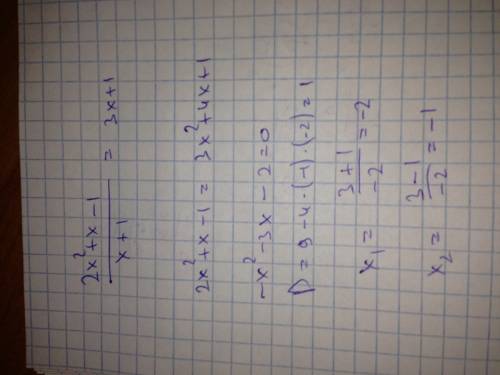 (2x² + x - 1)/(x + 1) = 3x + 1
2x² + x - 1 = 3x² + 4x + 1
-x² - 3x - 2 = 0
D = 9 - 4 · (-1) · (-2) = 1
x₁ = (3 + 1)/(-2) = -2
x₂ = (3 - 1)/(-2) = -1